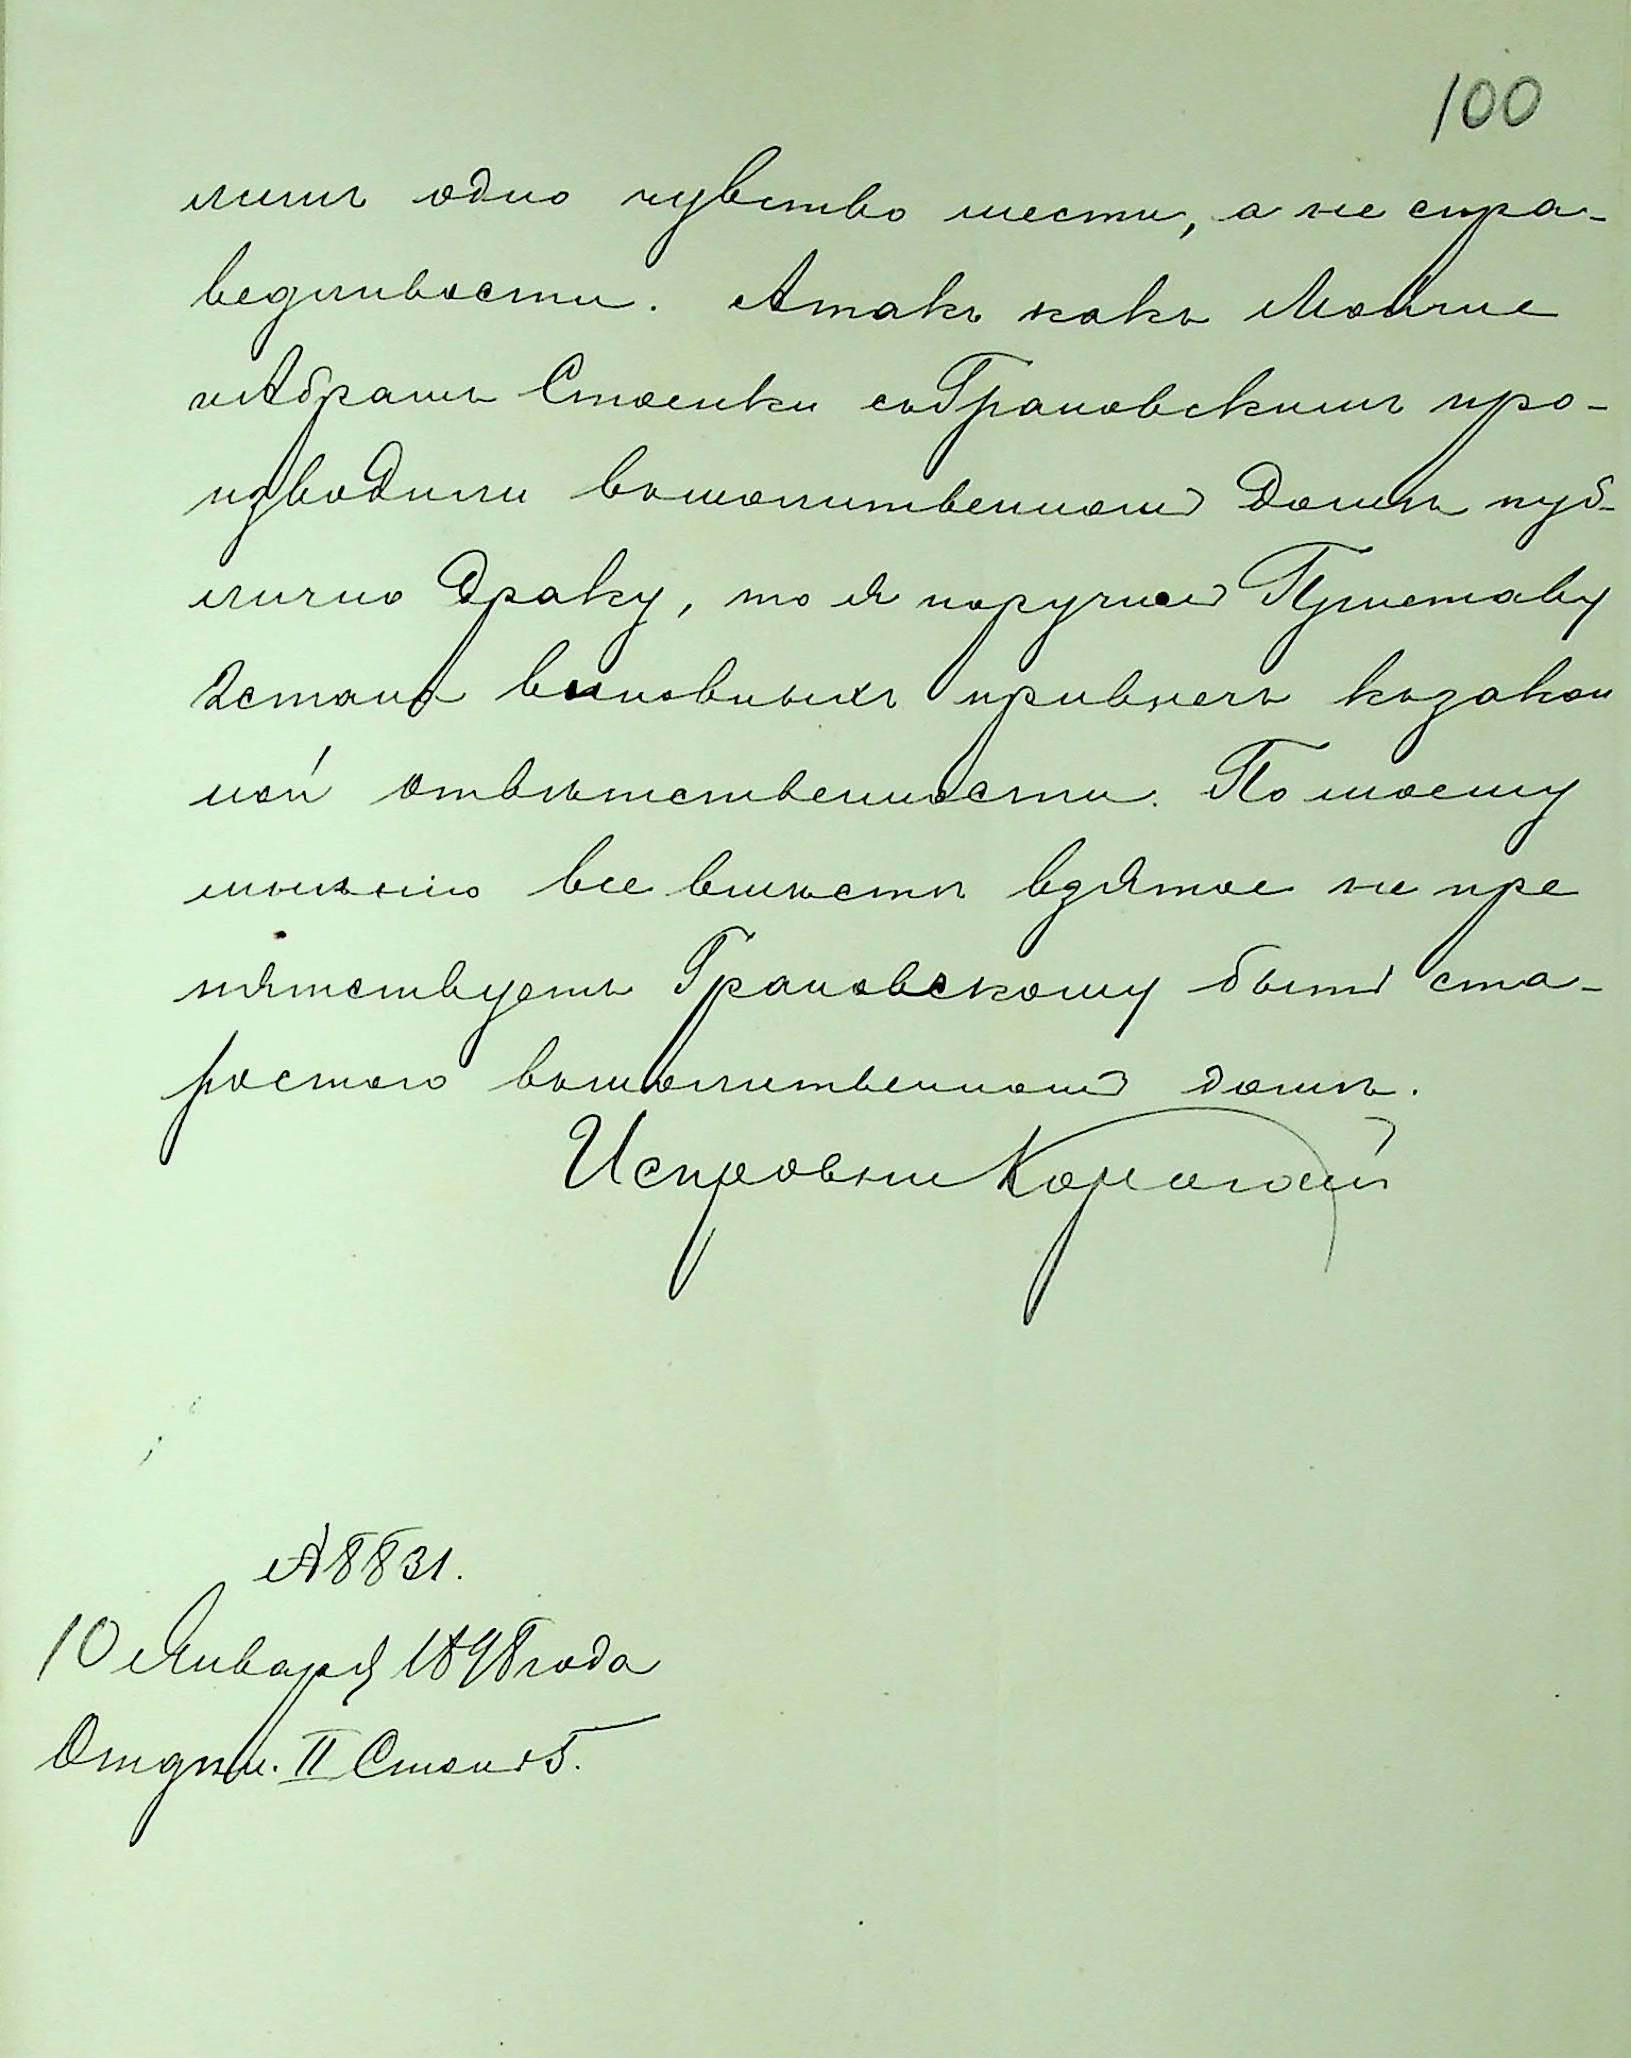 100
лишь одно чувство мести, а не спра-
ведливости. Атакъ какъ Мойше
иАбрамъ Стоики съГрановскимъ про-
изводили вомолитвенномъ Домѣ пуб-
лично Драку, то я поручилъ Приставу
2 стана виновныхъ привлечь къзакон
ной отвѣтственности. По моему
мнѣнію все вмѣстѣ взятое не пре
пятствуетъ Грановскому быть ста-
ростою вомолитвенномъ домѣ.
Исправни
№ 8831.
10 Января 1898 года
Отдѣл. II Столъ 5.